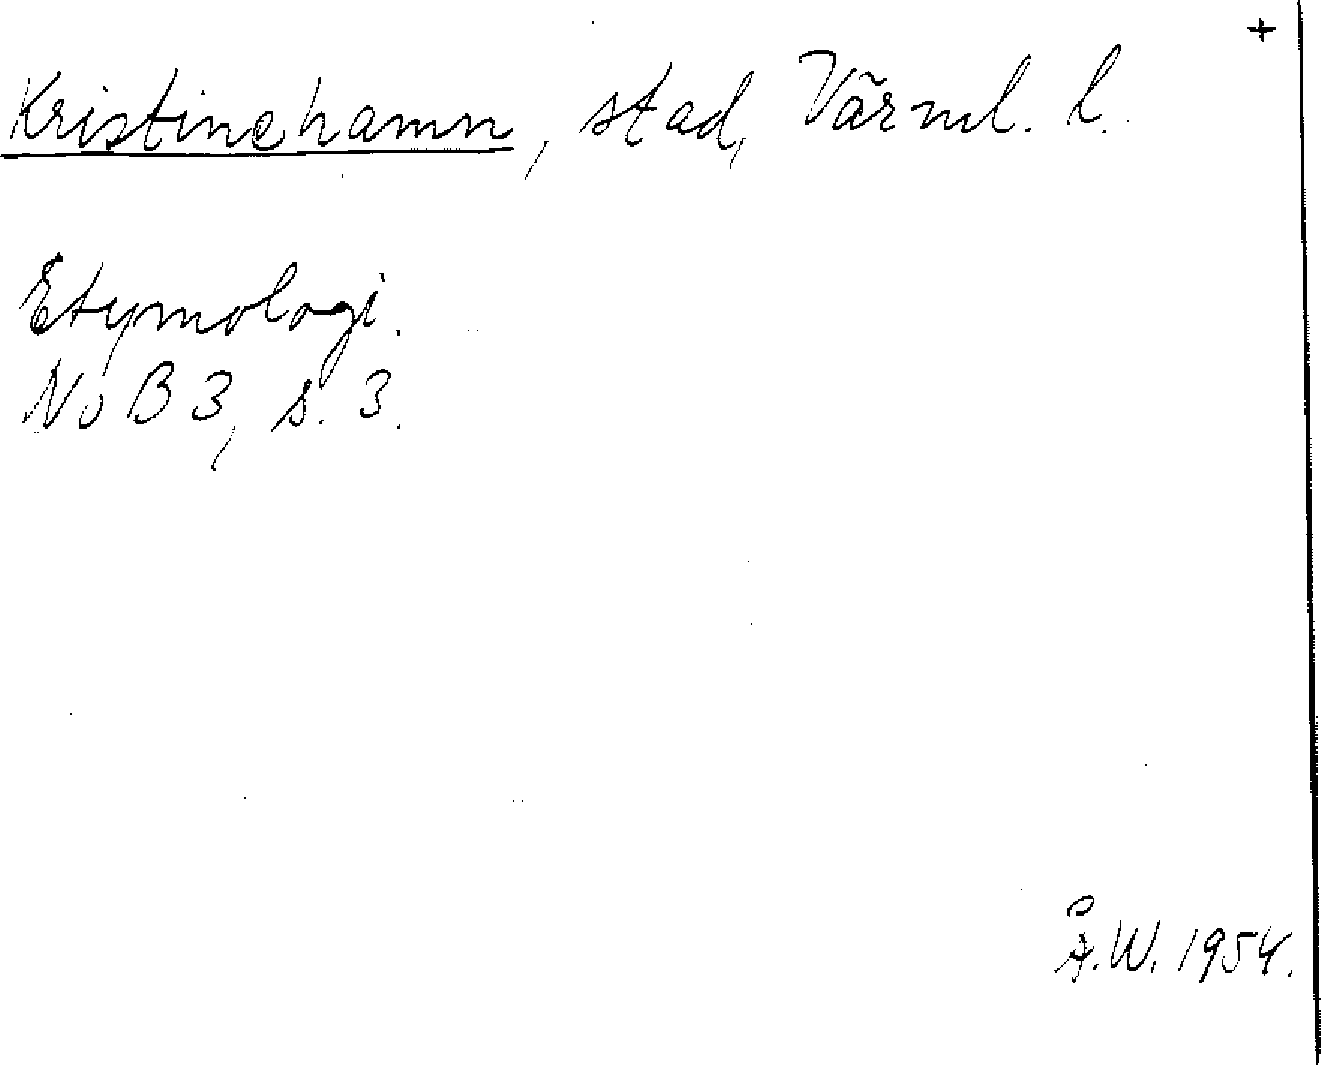 +
Kristinehamn, stad, Värml. l.
Etymologi.
NoB 3, s. 3.
Å.W. 1954.